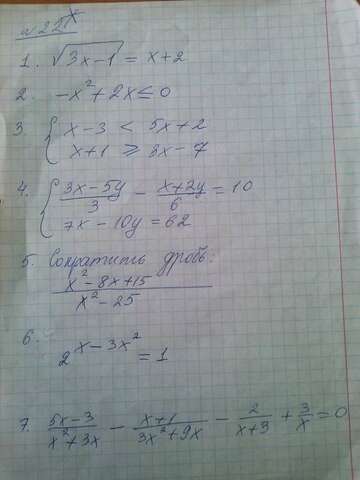 № 22
1. √3x-1 = x+2
2. -x²+2x ≤ 0
3. { x-3 < 5x+2
x+1 ⩾ 3x-7
4. { (3x-5y)/3 - (x+2y)/6 = 10
7x-10y = 62
5. Сократить дробь:
(x²-8x+15)/(x²-25)
6. 2^(x-3x²) = 1
7. (5x-3)/(x²+3x) - (x+1)/(3x²+9x) - 2/(x+3) + 3/x = 0